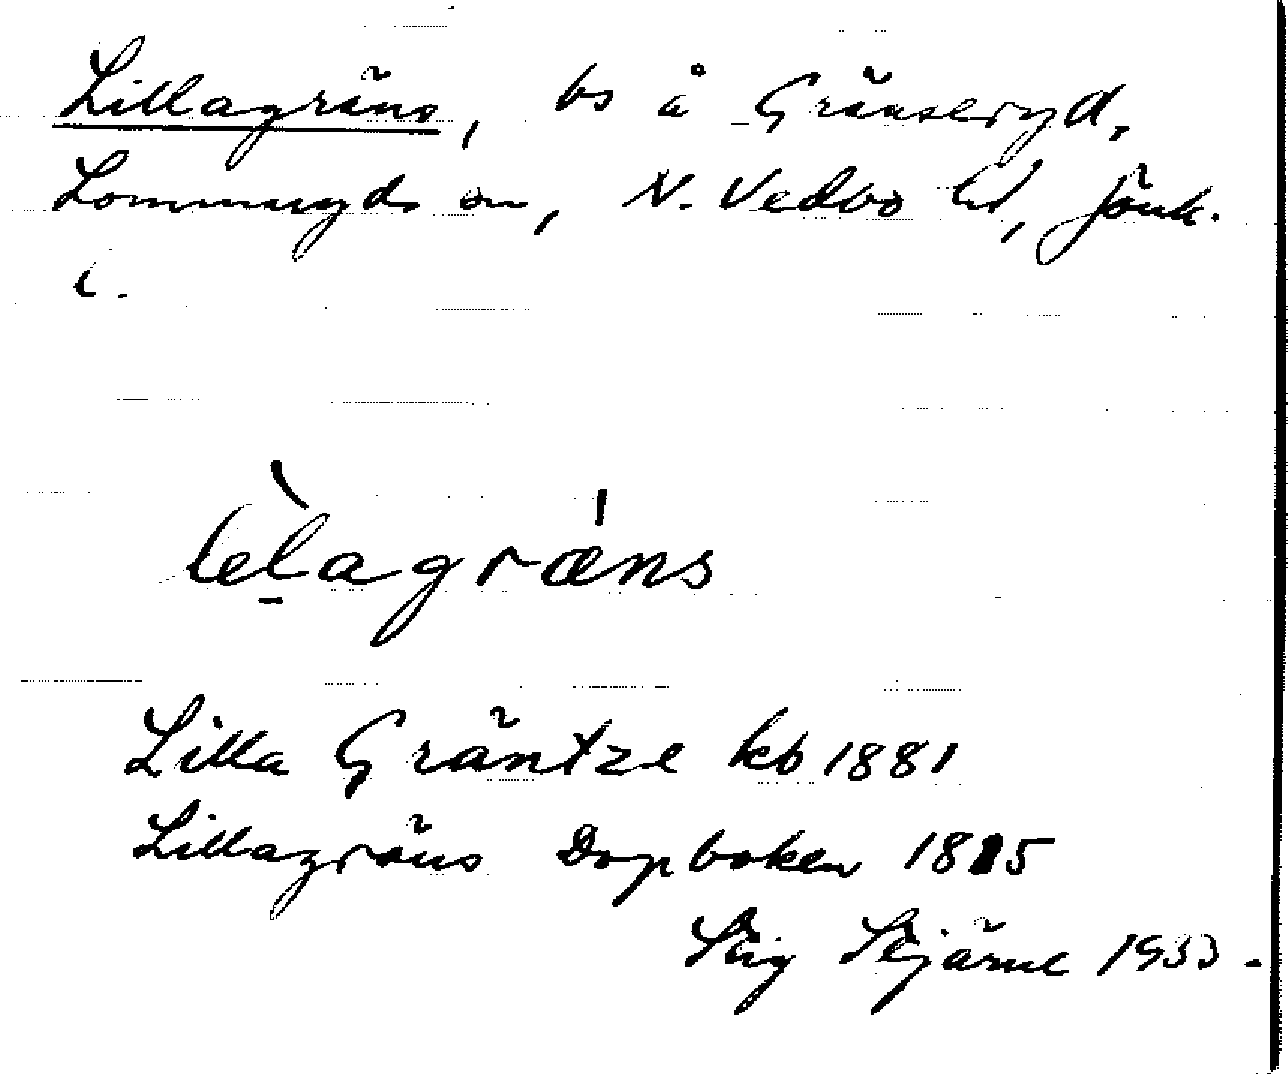 Lillagräns, bs å Gränseryd,
Lommaryds sn, N. Vedbo hd, Jönk.
l.
lèlagrǽns
Lilla Gräntze kb 1881
Lillagräns Dopboken 1815
Stig Stjärne 1933.